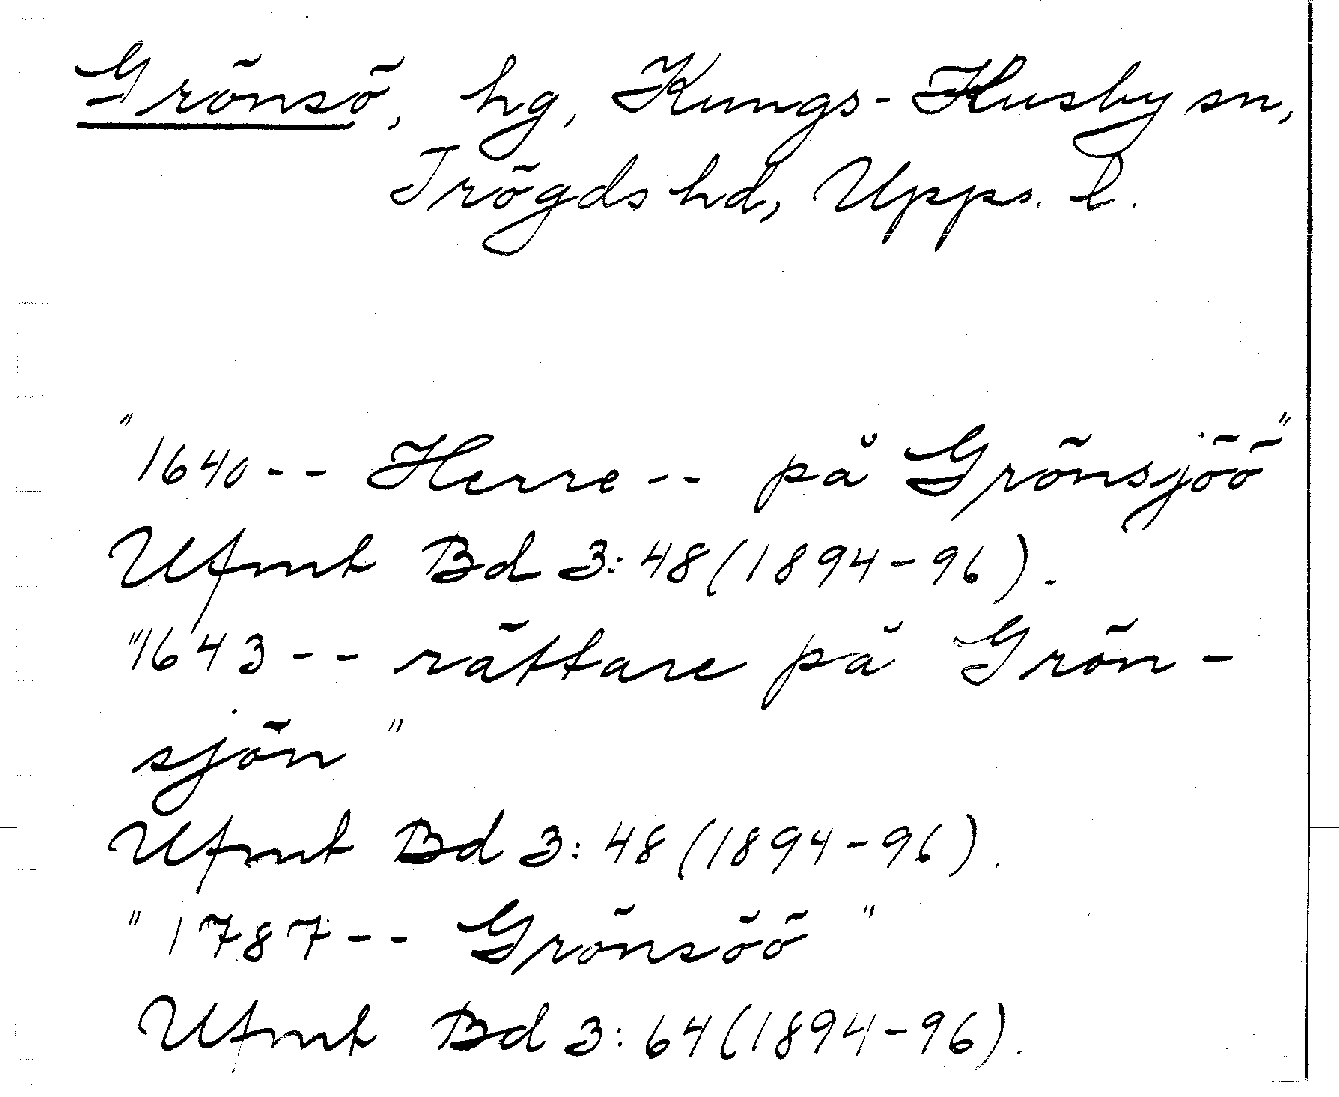 Grönsö, hg, Kungs-Husby sn,
Trögds hd, Upps. l.
"1640-- Herre-- på Grönsjöö"
Ufmt Bd 3:48(1894-96).
"1643-- rättare på Grön-
sjön"
Ufmt Bd 3:48(1894-96).
"1787-- Grönsöö"
Ufmt Bd 3:64(1894-96).